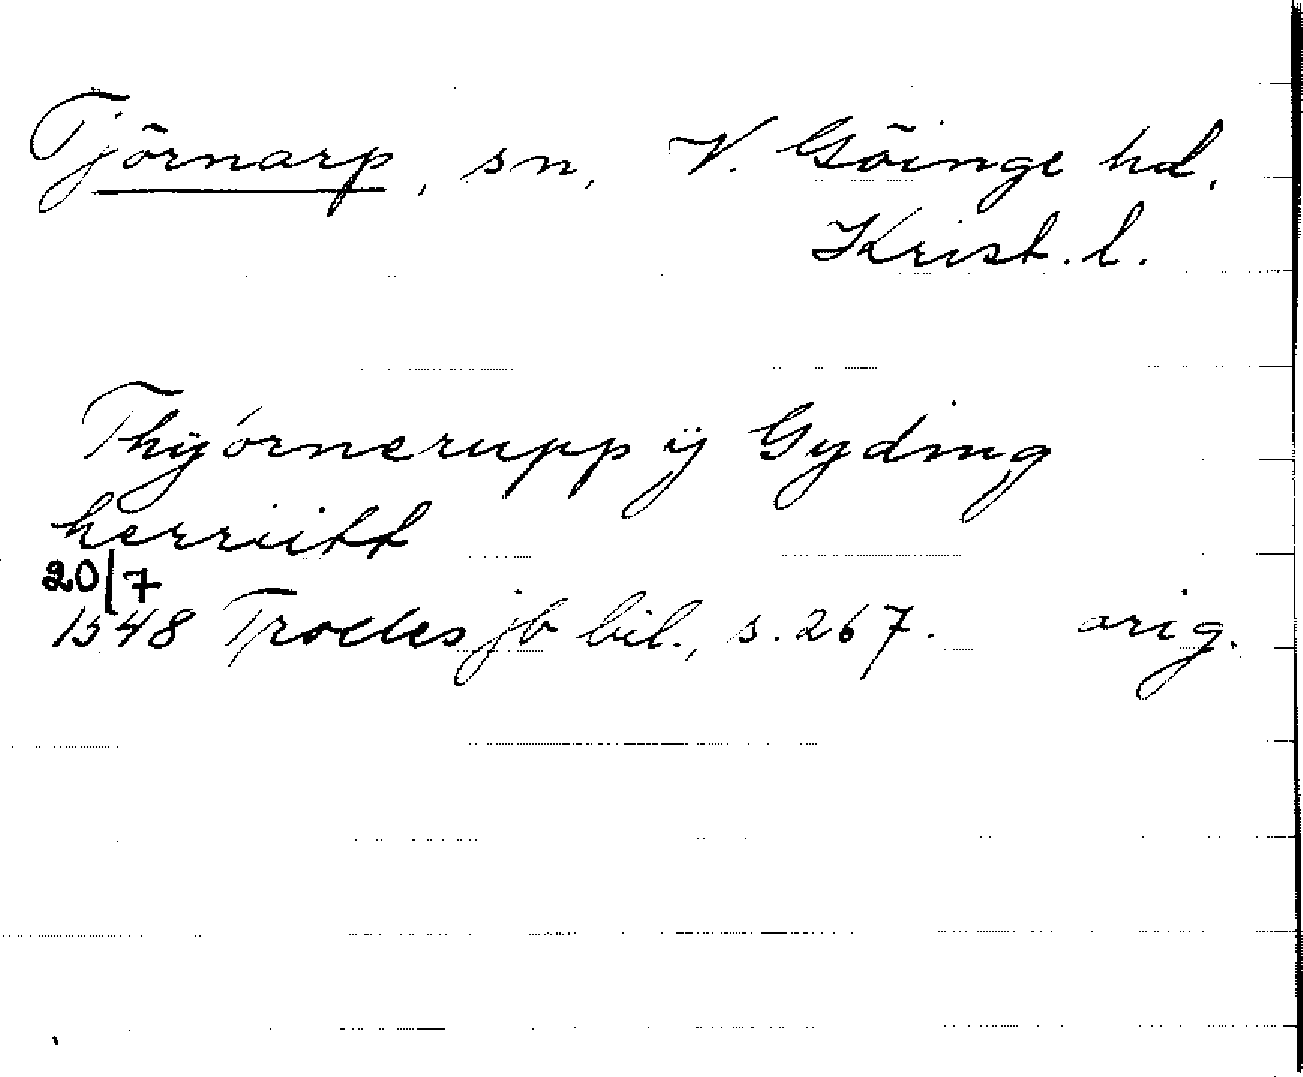 Tjörnarp, sn, V. Göinge hd,
Krist. l.
Thÿórnerupp ÿ Gyding
herriitt
20/7
1548 Trolles jb bil., s. 267. orig.